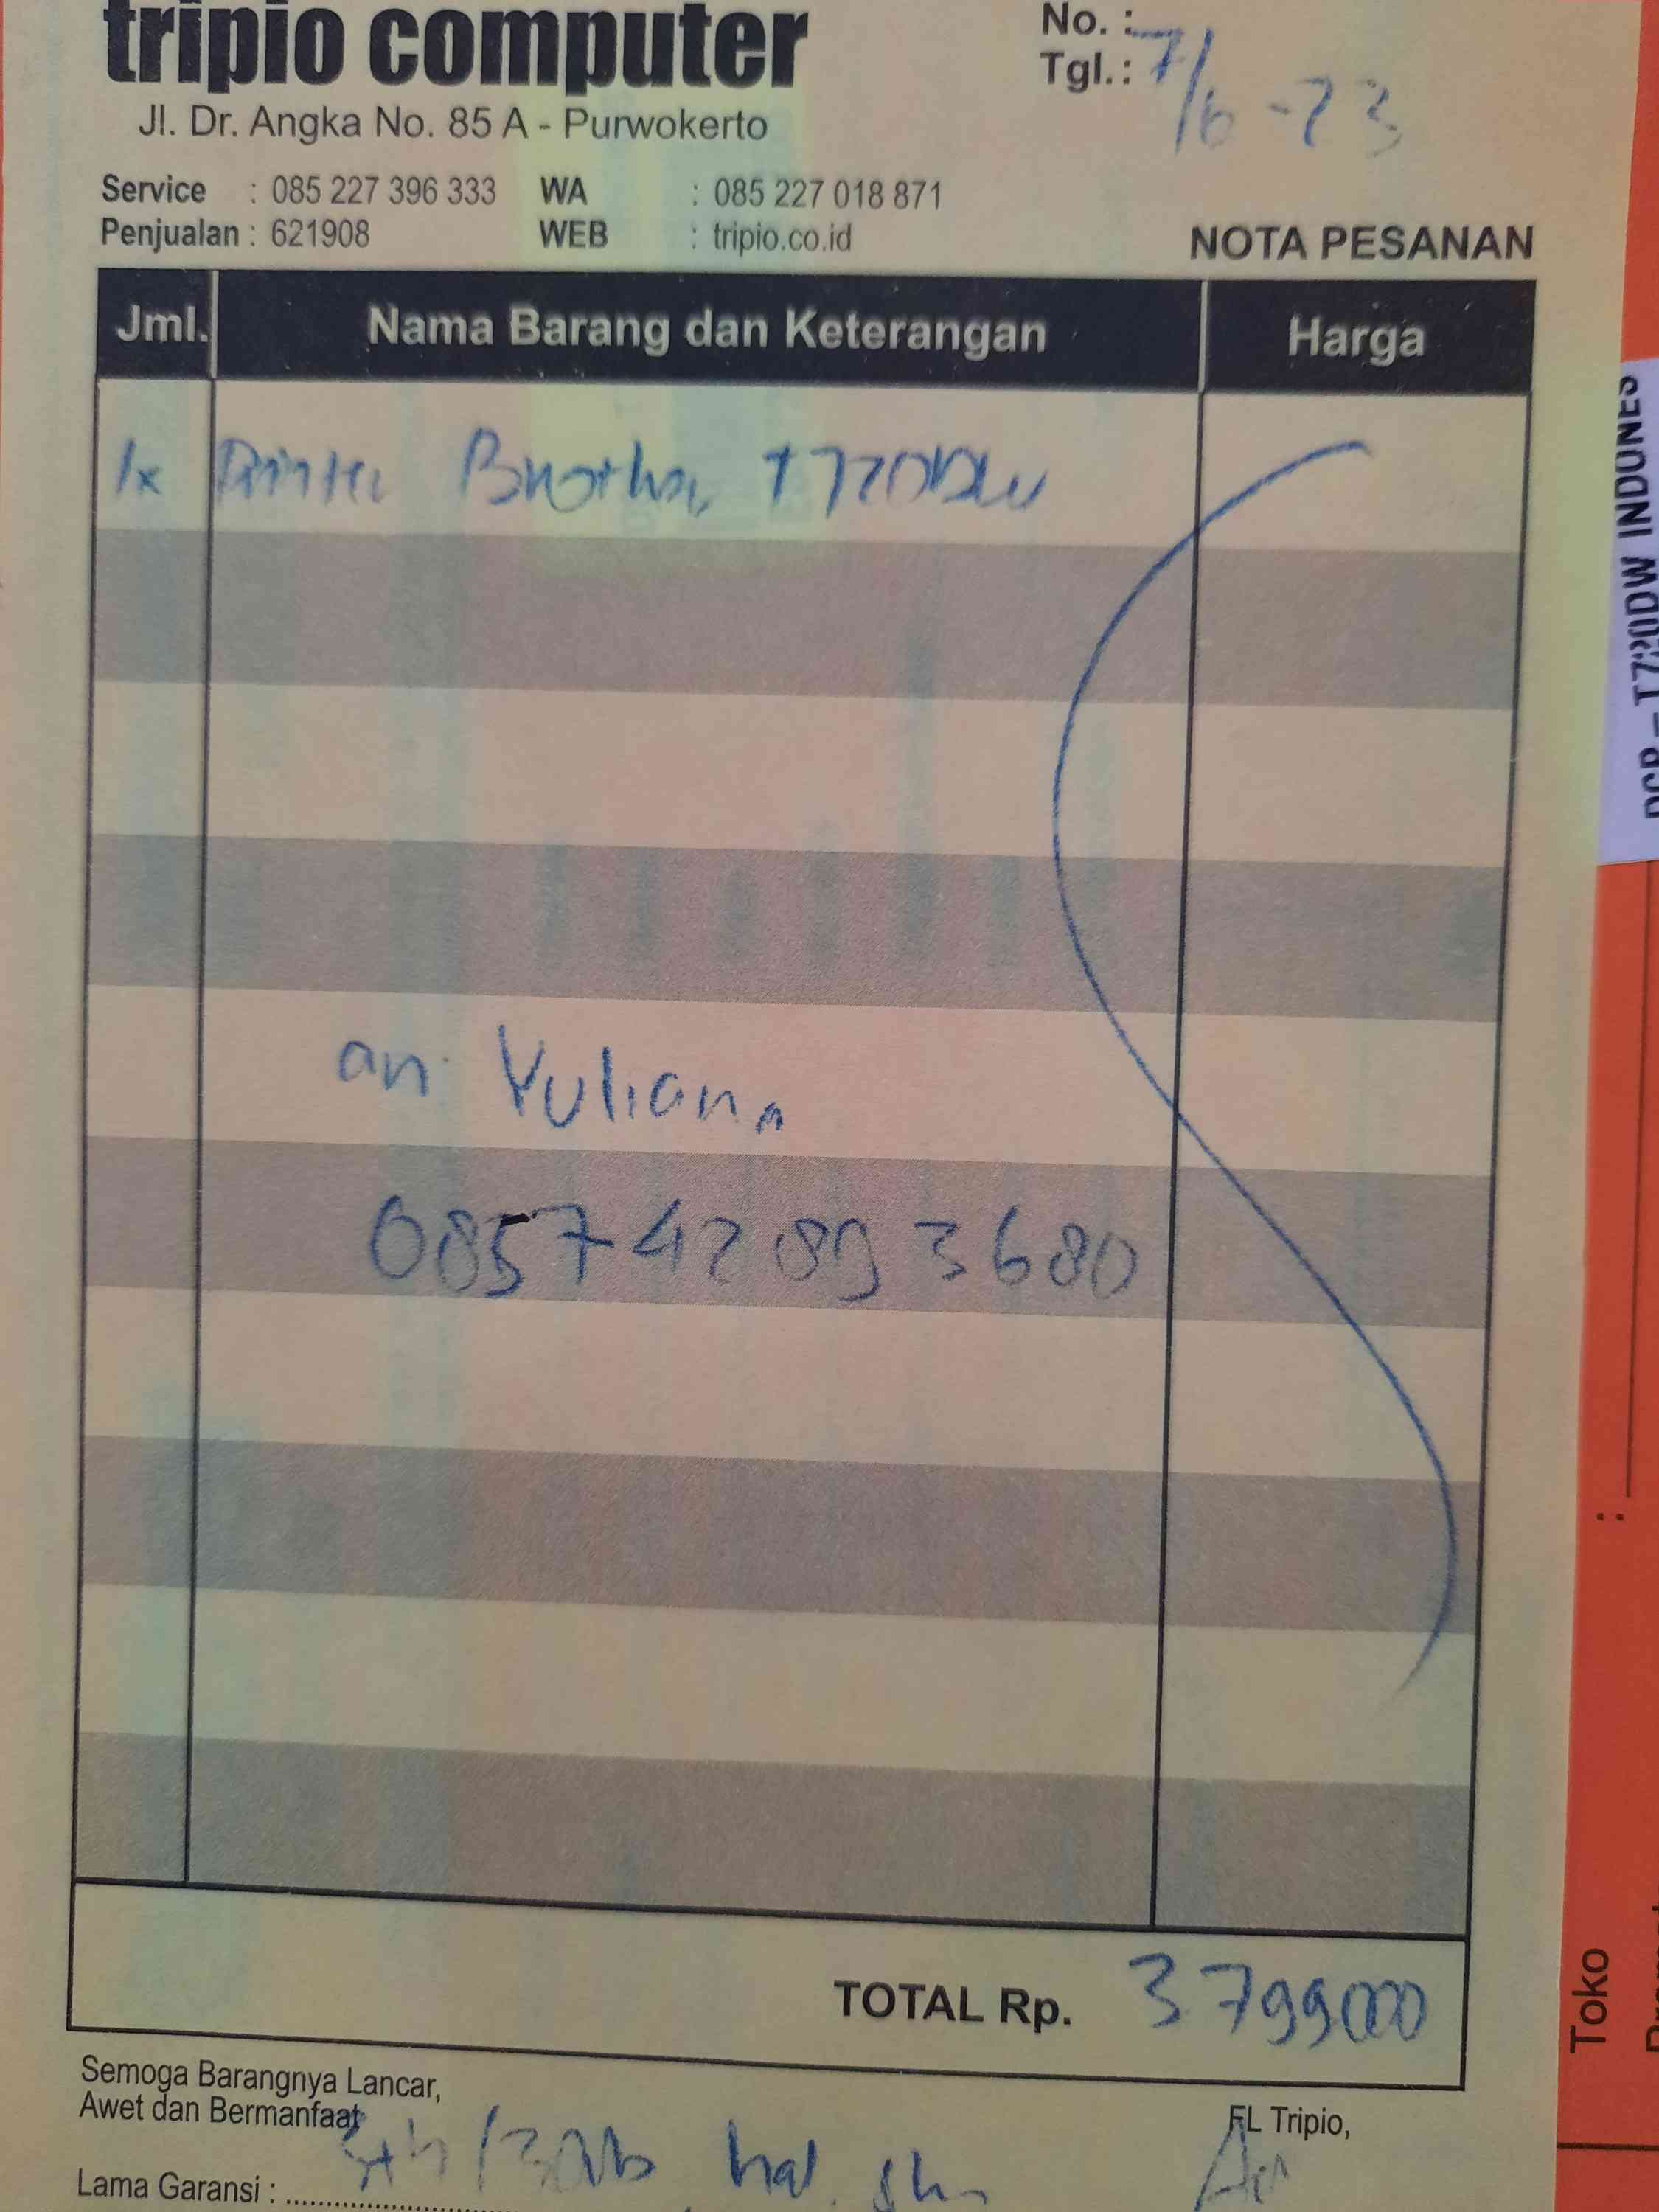 tripio computer
Jl. Dr. Angka No. 85 A - Purwokerto
No. :
Tgl. : 7/6 - 23
Service : 085 227 396 333 WA : 085 227 018 871
Penjualan : 621908 WEB : tripio.co.id
NOTA PESANAN
Jml. Nama Barang dan Keterangan Harga
1x Printer Brother T720DW
an Yuliana
085742893680
TOTAL Rp. 3799000
Semoga Barangnya Lancar,
Awet dan Bermanfaat
FL Tripio,
Lama Garansi :
T720DW INDONES
Toko :